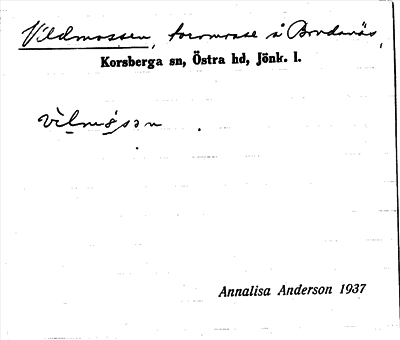 Vildmossen, torvmosse å Bordanäs,
Korsberga sn, Östra hd, Jönk. l.
vìlmòsən .
Annalisa Anderson 1937